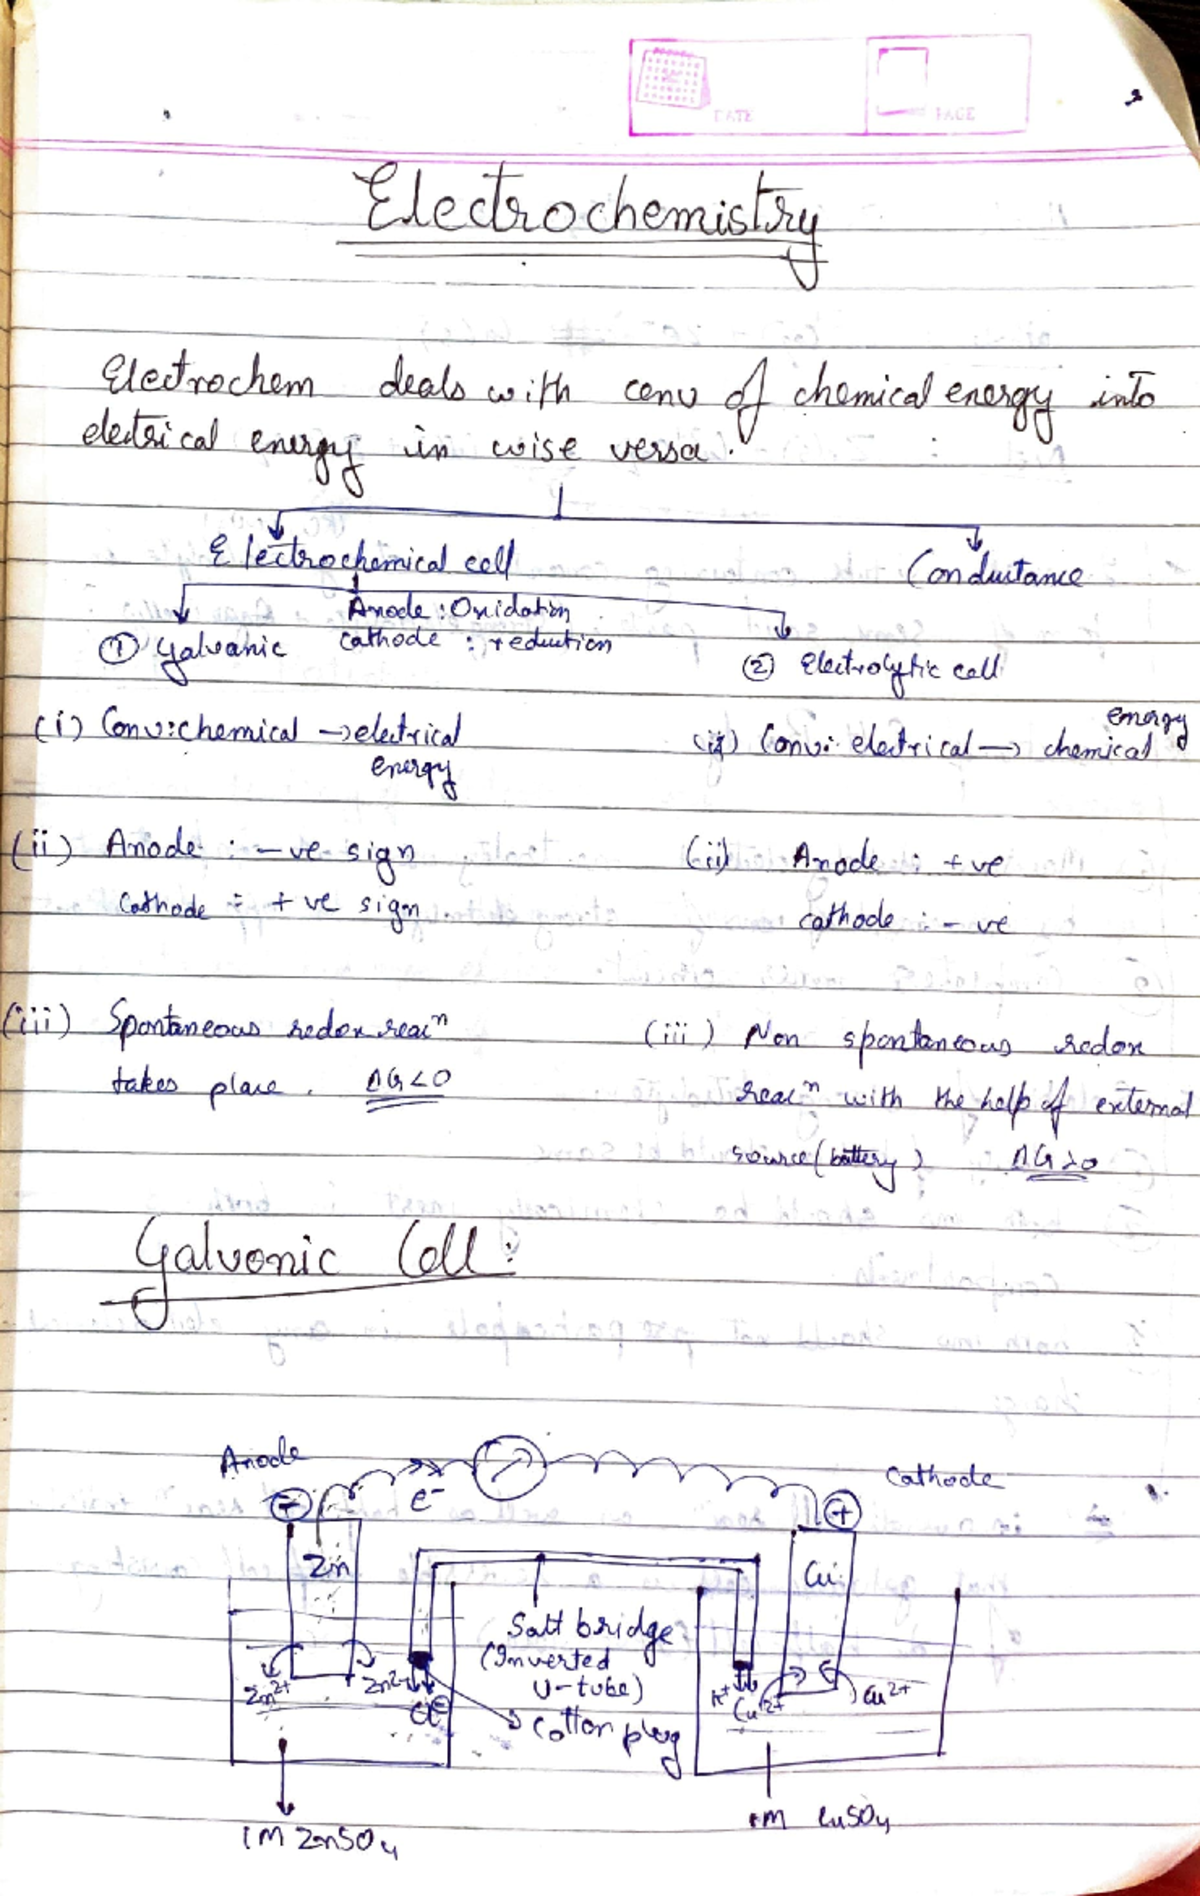 DATE
PAGE
Electrochemistry
Electrochem deals with conv of chemical energy into
electrical energy in wise versa.
Electrochemical cell
Conductance
Anode : Oxidation
cathode : reduction
① Galvanic
② Electrolytic cell
(i) Conv:chemical → electrical
energy
(i) Conv: electrical → chemical
energy
(ii) Anode : -ve sign
Cathode : +ve sign
(ii) Anode : +ve
cathode : -ve
(iii) Spontaneous redox reacⁿ
takes place. ΔG<0
(iii) Non spontaneous redox
reacⁿ with the help of external
source (battery) ΔG>0
Galvonic Cell:
Anode
Cathode
e⁻
−
+
Zn
Cu
Salt bridge
(Inverted
U-tube)
Cotton plug
Zn²⁺
Zn²⁺
Cl⊖
K⁺
Cu²⁺
Cu²⁺
1M ZnSO₄
1M CuSO₄